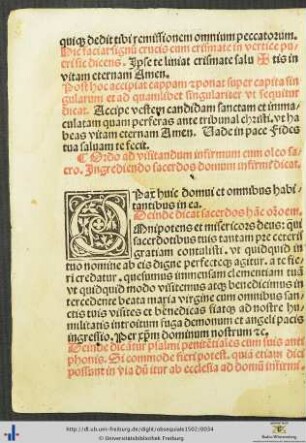 quiqꝫ dedit tibi remissionem omnium peccatorum.
Hic faciat signũ crucis cum crismate in vertice pu
eri sic dicens. Ipse te liniat crismate salu ✠ tis in
vitam eternam Amen.
Post hoc accipiat cappam ⁊ ponat super capita sin
gulorum et ad quamlibet singulariter vt sequitur
dicat. Accipe vestem candidam sanctam et imma
culatam quam perferas ante tribunal christi. vt ha
beas vitam eternam Amen. Vade in pace Fides
tua saluam te fecit.
Ordo ad visitandum infirmum cum oleo sa
cro. Ingrediendo sacerdos domum infirmi dicat.
Pax huic domui et omnibus habi
tantibus in ea.
Deinde dicat sacerdos hãc orõem.
Omnipotens et misericors deus: qui
sacerdotibus tuis tantam pre ceteris
gratiam contulisti. vt quidquid in
tuo nomine ab eis digne perfecteqꝫ agitur. a te fie
ri credatur. quesumus immensam clementiam tuã
vt quidquid modo visitemus atqꝫ benedicimus in
tercedente beata maria virgine cum omnibus san
ctis tuis visites et benedicas sitatqꝫ ad nostre hu
militatis introitum fuga demonum et angeli pacis
ingressio. Per xp̃m dominum nostrum ⁊c.
Deinde dicãtur psalmi penitẽtiales cum suis anti
phonis. Si commode fieri potest. quia etiam dici
possunt in via dũ itur ab ecclesia ad domũ infirmi.
http://dl.ub.uni-freiburg.de/diglit/obsequiale1502/0034
© Universitätsbibliothek Freiburg